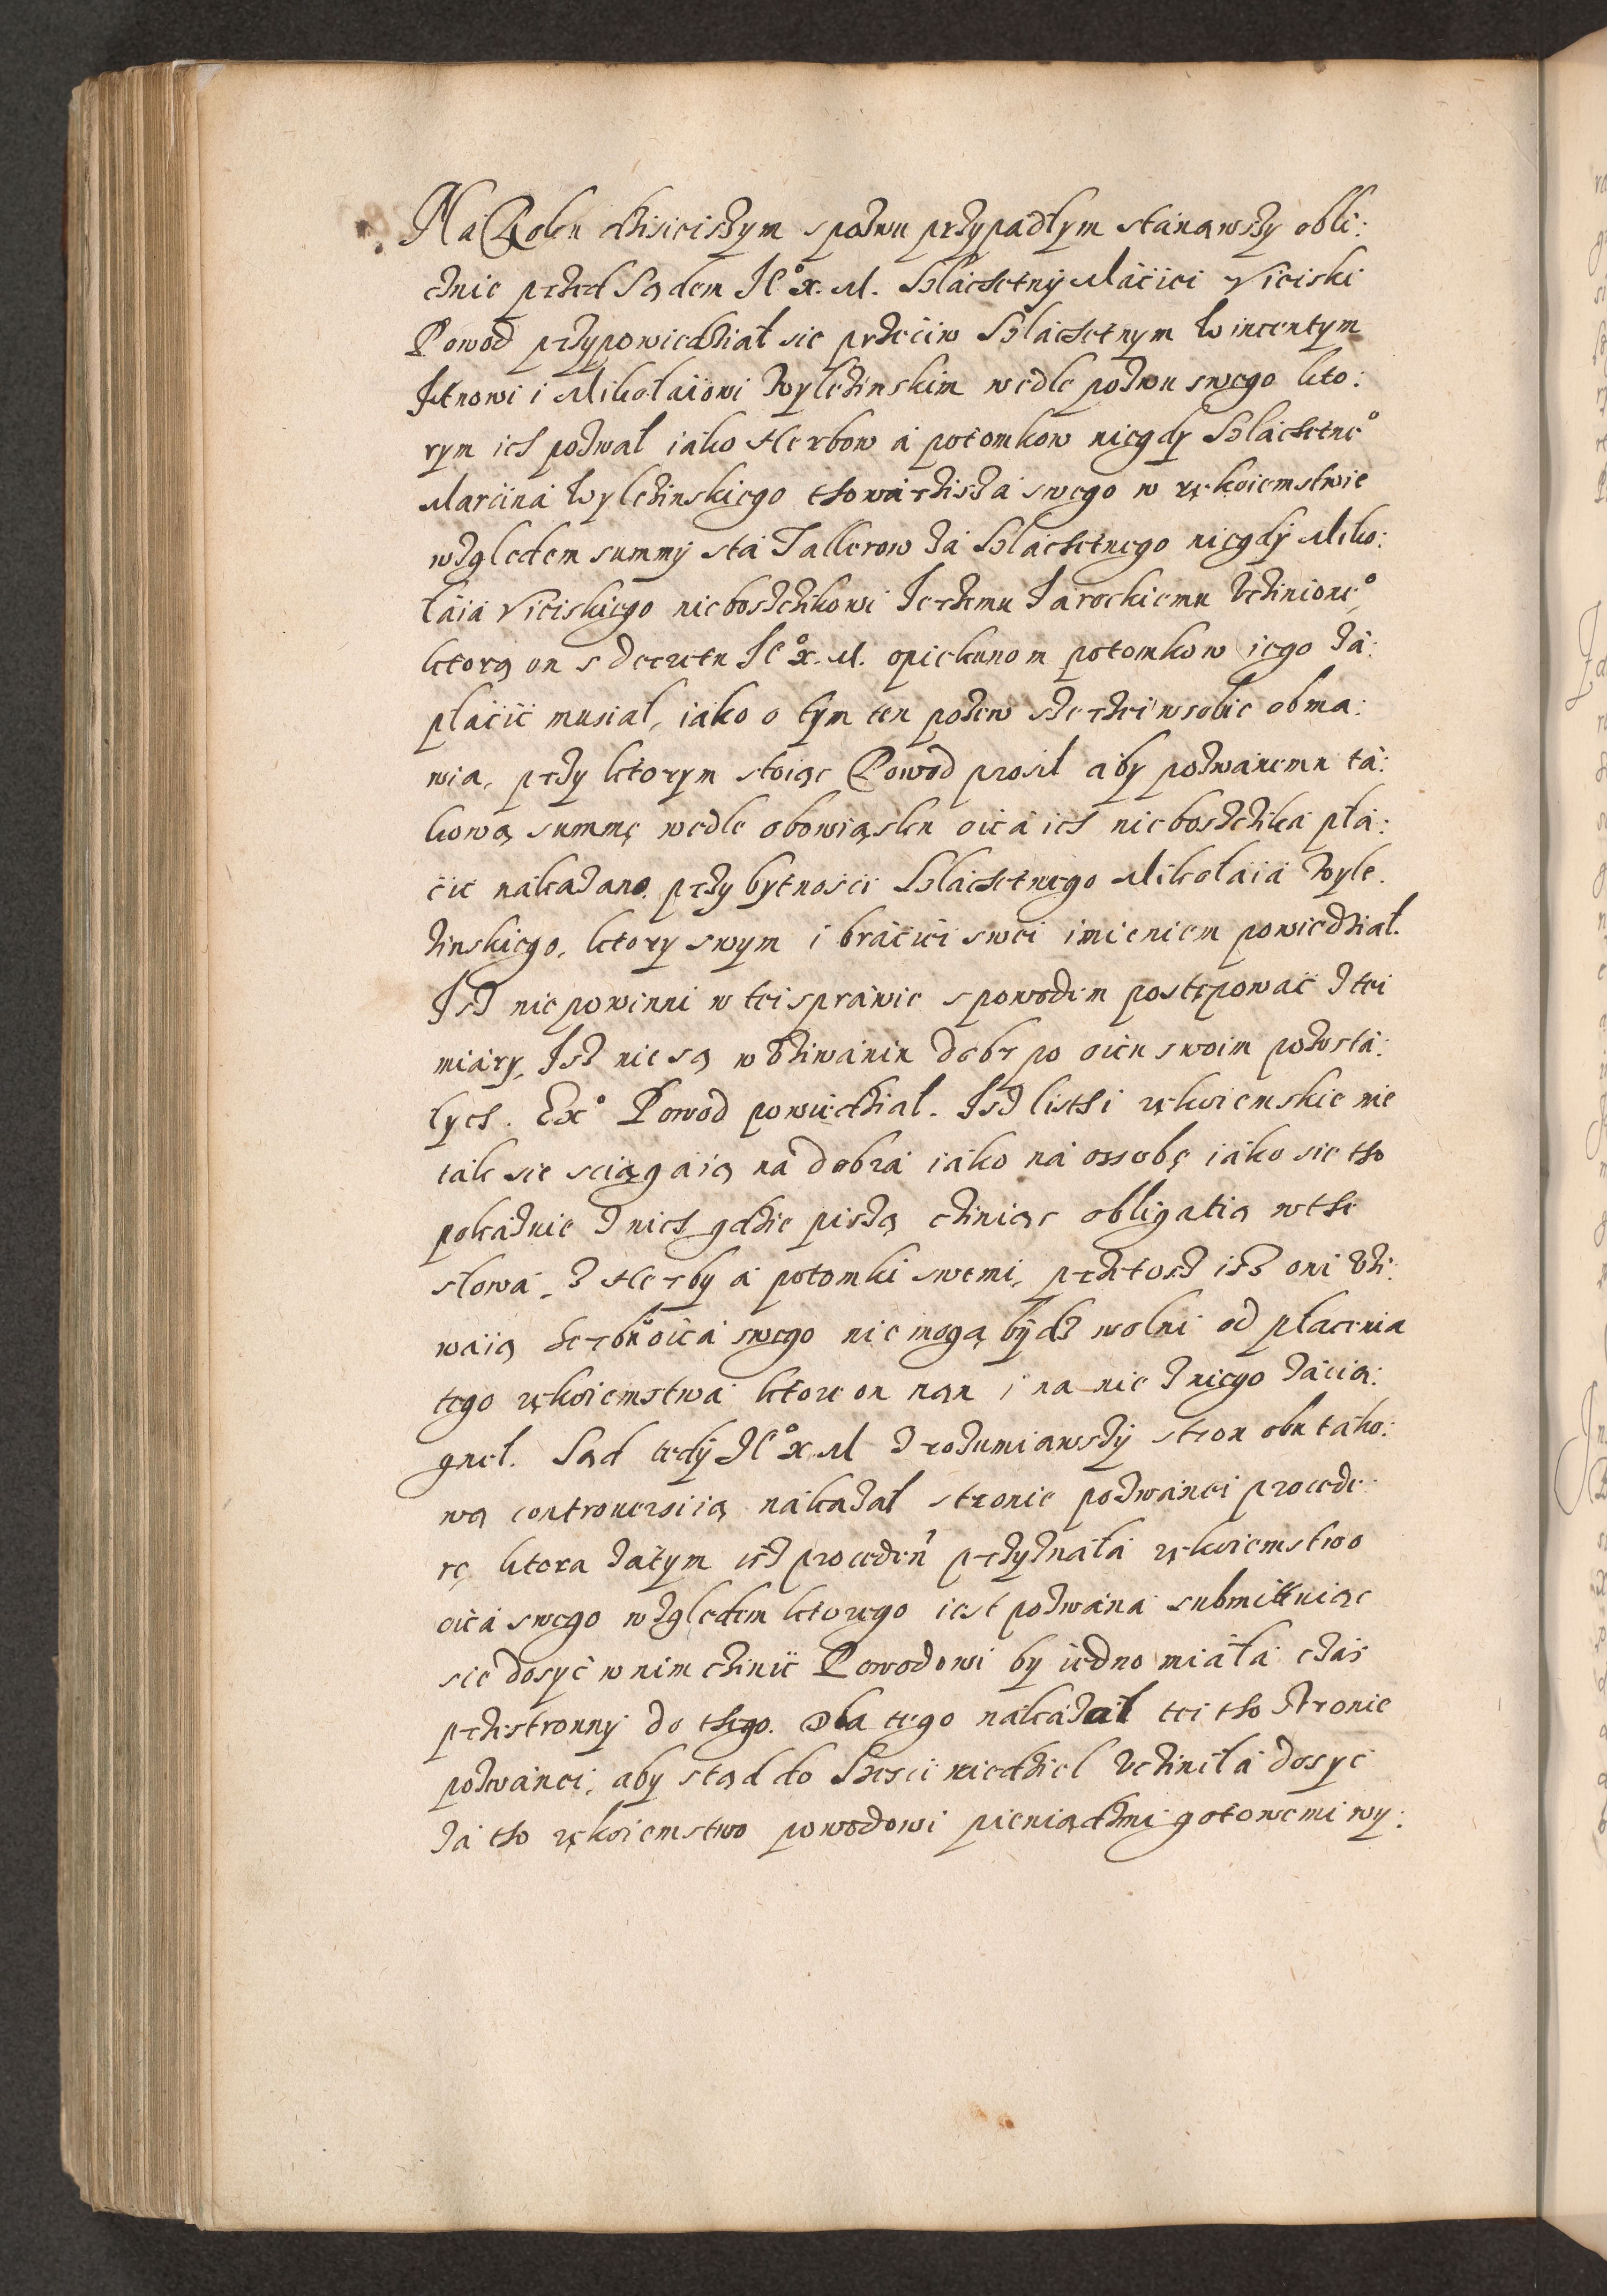 Na Roku dzisieiszym s pozwu przypadłym stánąwszy obli:
cznie przed Sądem Jº X. M. Szláchetny Máciei Viciski
Powod przypowiedział sie przeciw Szláchetnym Wincentym
Janowi i Mikołaiowi Wyleżinskim wedle pozwu swego kto:
rym ich pozwał iáko Herbow á potomkow niegdy Szláchetneº
Marcina Wyleżinskiego thowárzisza swego w rękoiemstwie
względem summy sta Tallerow zá Szláchetnego niegdy Miko:
łáiá Viciskiego nieboszczikowi Jerzemu Jarockiemu Vczinioneº
ktorą on s decretu Jº X. M. opiekunom potomkow iego zá:
płácić musiał, iáko o tym ten pozew szerzei w sobie obma:
wia, przy ktorym stoiąc Powod prosił áby pozwánemu tá:
kową summę wedle obowiąsku oicá ich nieboszcziká płá:
cić nákazano. przy bytnosci Szláchetnego Mikołaiá Wyle.
żinskiego, ktory swym i bráciei swei imieniem powiedział.
Isz nie powinni w tei spráwie s powodem postępowáć z tei
miáry, Isz nie są w vżiwániu dobr po oicu swoim pozostá:
łych. Exº Powod powiedział. Isz listhi rękoiemskie nie
tak sie sciągáią na dobrá iáko ná ossobę iáko sie tho
pokázuie z nich gdzie piszą cziniąc obligatią w the
słowá, z Herby á potomki swemi, przetosz isz oni vżi:
waią herbu oicá swego nie mogą bydz wolni od płacenia
tego rękoiemstwá ktore on nań i na nie z niego zácią:
gnął. Sąd tedy Jº X. M zrozumiawszy stron obu táko:
wą controuersiią nákazał stronie pozwánei procede
re, ktora zátym isz proceden przyznáłá rękoiemstwo
oicá swego względem ktorego iest pozwána submittuiąc
sie dosyć w nim czinić Powodowi by iedno miáłá czás
przestronny do thego. Dla tego nákazał tei tho stronie
pozwánei, áby stąd do Szesci niedziel Vcziniłá dosyć
Zá tho rękoiemstwo powodowi pieniądzmi gotowemi wy: